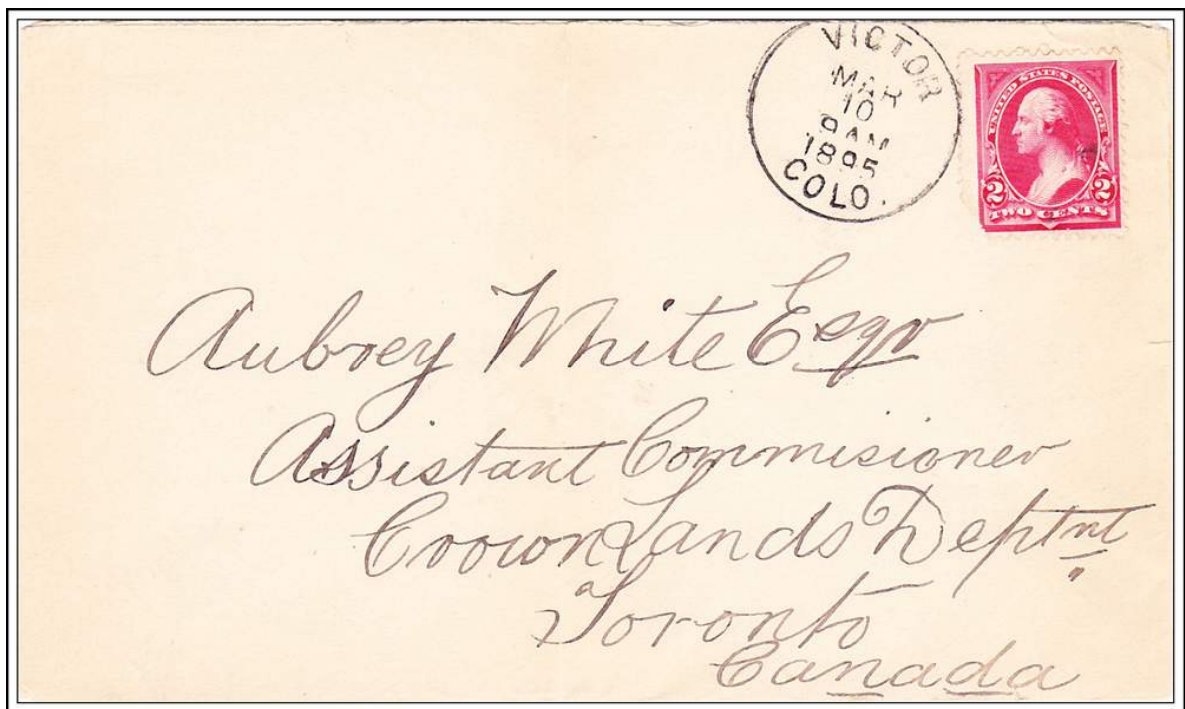 VICTOR
MAR
10
9 AM
1895
COLO.
UNITED STATES POSTAGE
2 2
TWO CENTS
Aubrey White Esqr
Assistant Commisioner
Crown Lands Deptmt
Toronto
Canada